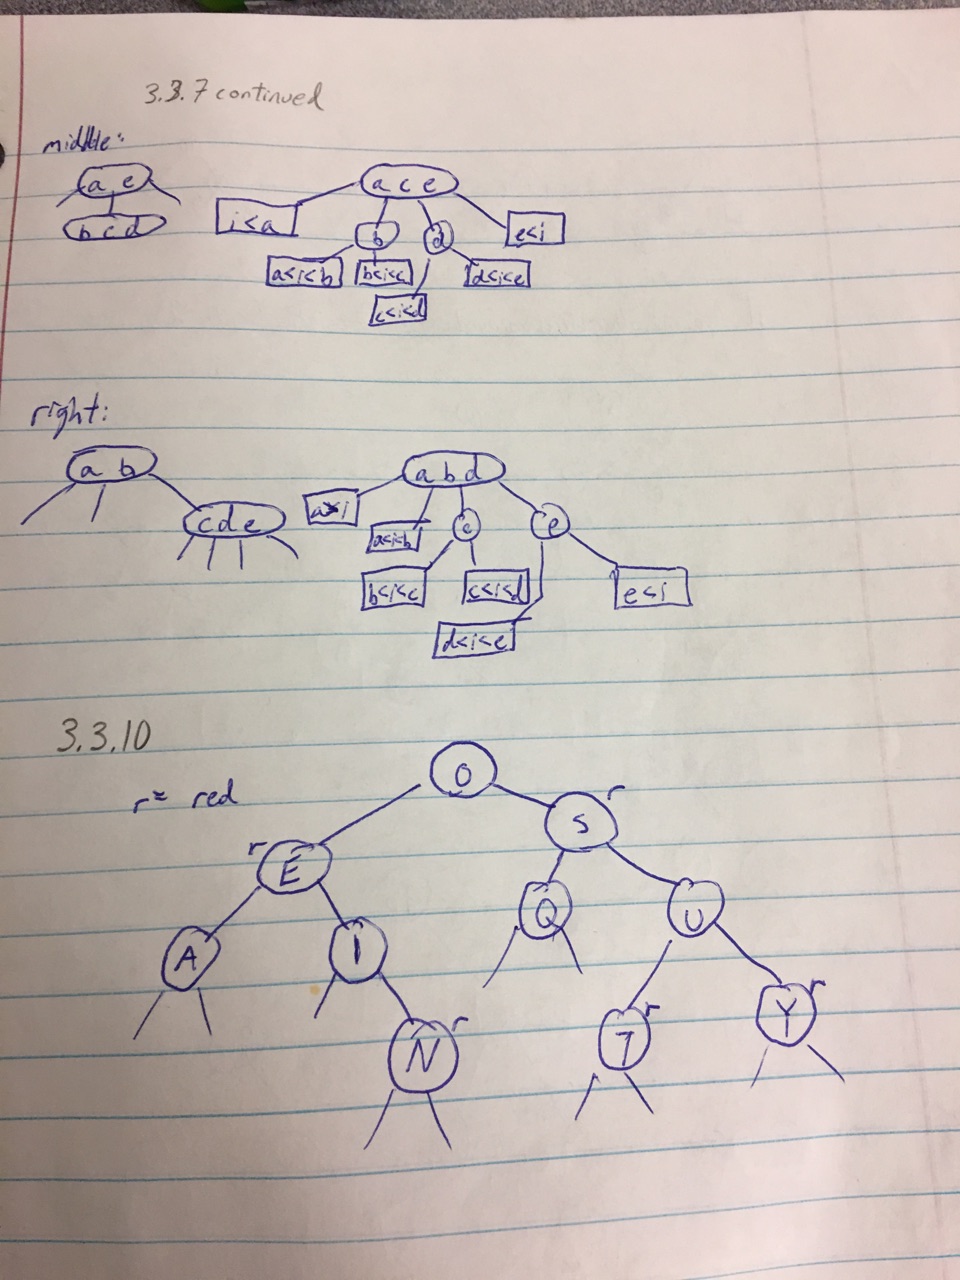 3.3.7 continued
middle:
a e
a c e
b c d
i<a
b
d
e<i
a<i<b
b<i<c
d<i<e
c<i<d
right:
a b
a b d
c d e
a>i
a<i<b
c
e
b<i<c
c<i<d
e<i
d<i<e
3.3.10
r= red
O
S r
r E
A
I
Q
U
N r
T r
Y r